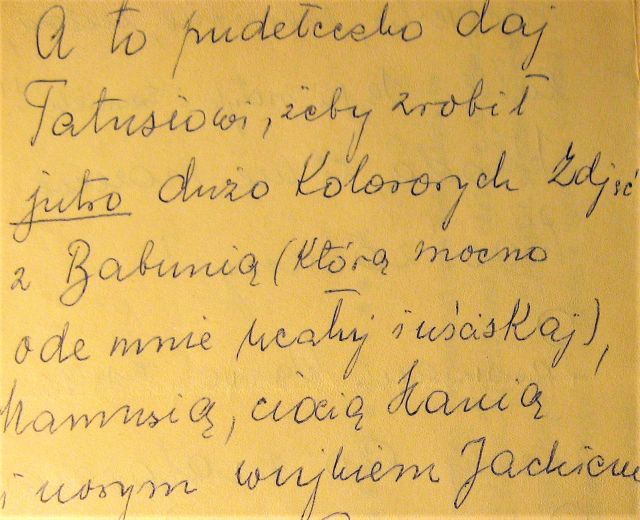 A to pudełeczko daj
Tatusiowi, żeby zrobił
jutro dużo Kolorowych Zdjęć
z Babunią (którą mocno
ode mnie ucałuj i uściskaj),
Mamusią, ciocią Hanią
i nowym wujkiem Jackiem